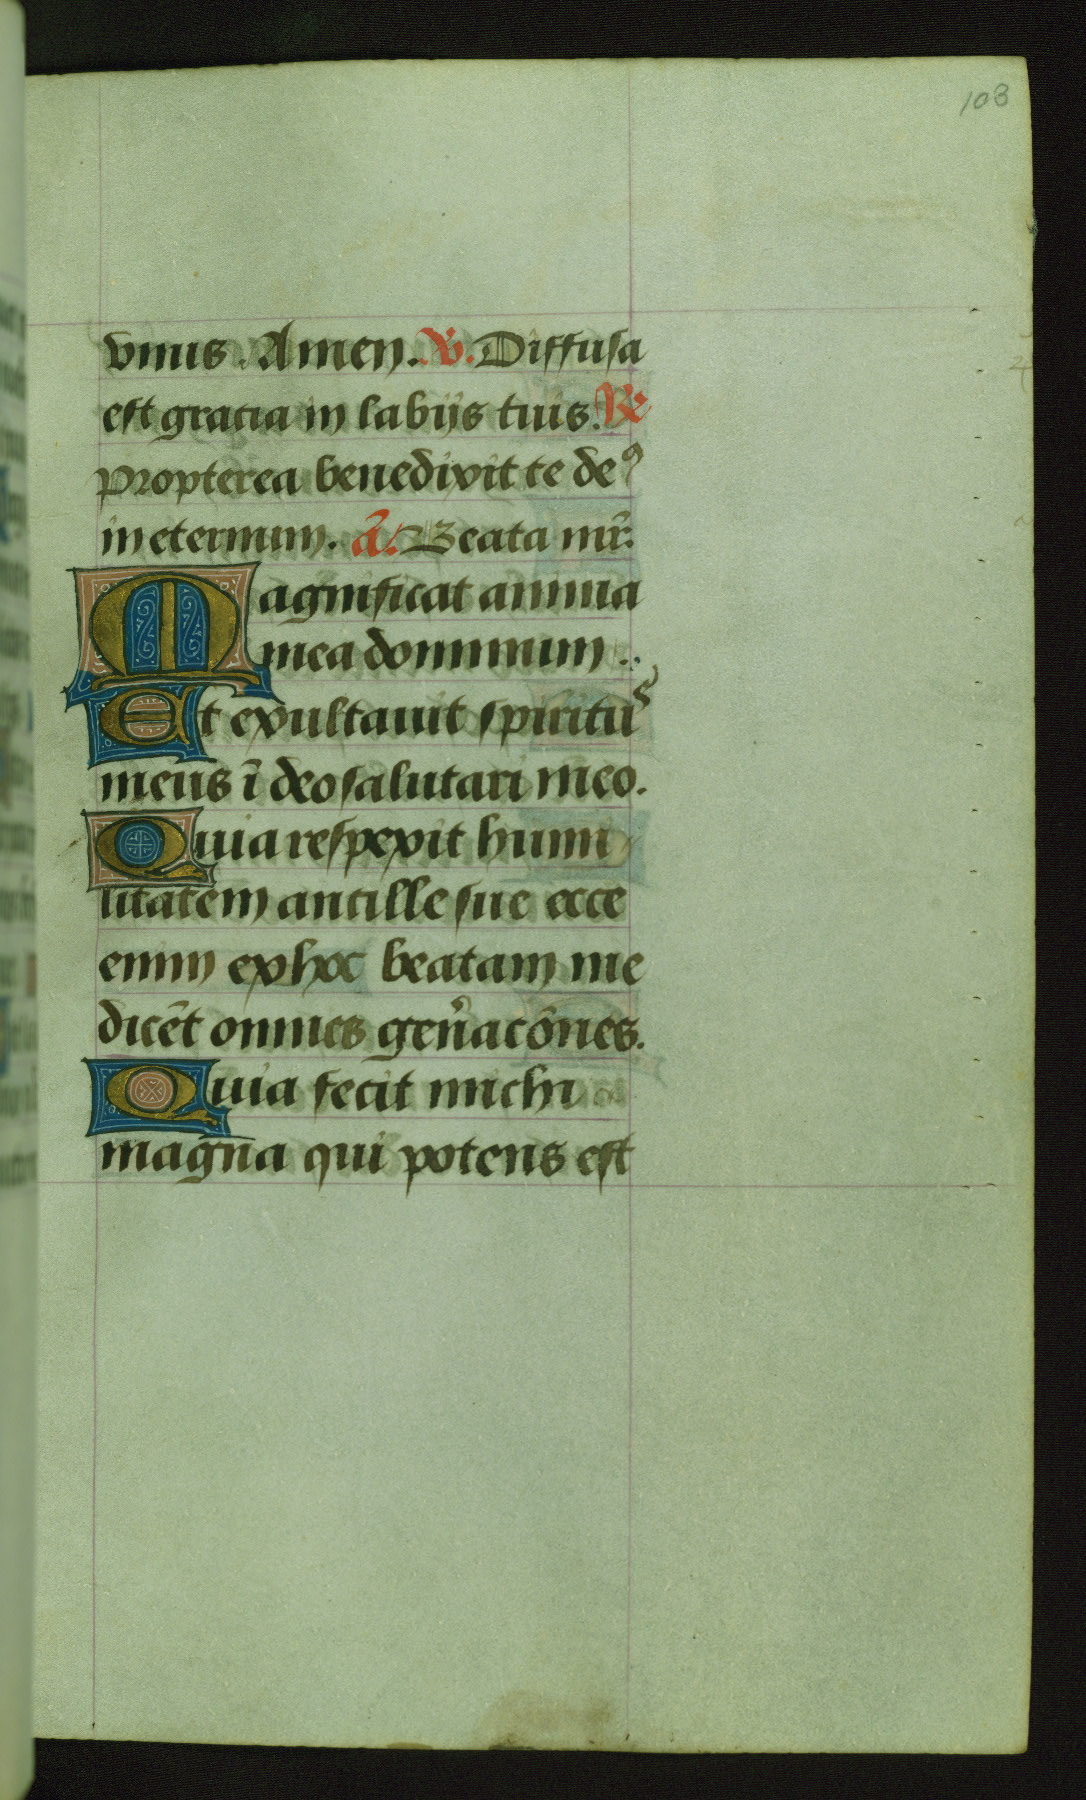 103
vnus. Amen. V. Diffusa
est gratia in labijs tuis. R
Propterea benedixit te deꝰ
in eternum. a͞. Beata mr̄.
Magnificat anima
mea dominum..
Et exultauit spiritus
meus ī deo salutari meo.
Quia respexit humi
litatem ancille sue ecce
enim ex hoc beatam me
dicēt omnes gen̄acōnes.
Quia fecit michi
magna qui potens est